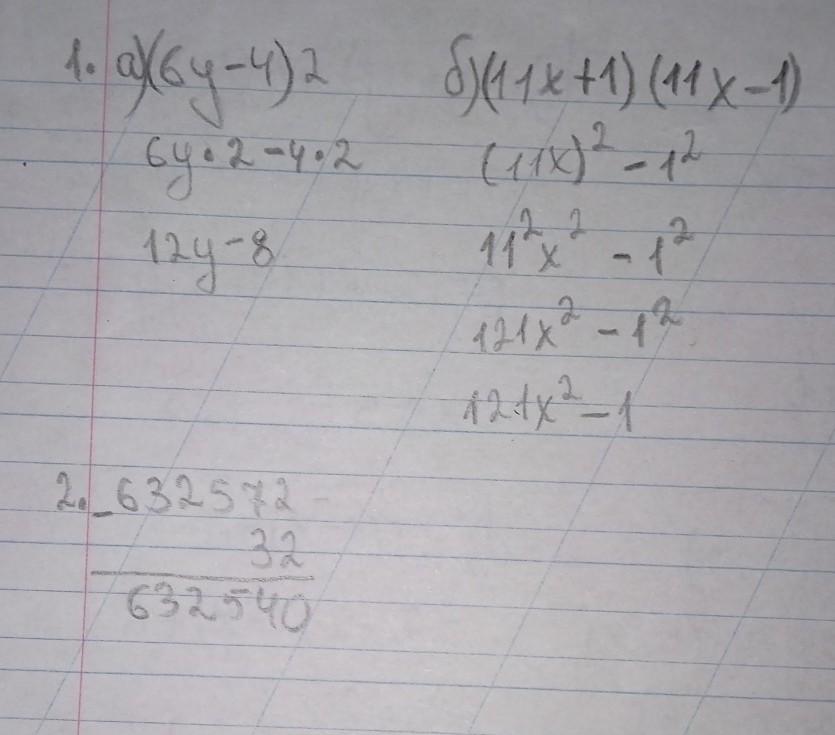 1. а)(6y-4)2
6y·2-4·2
12y-8
б)(11x+1)(11x-1)
(11x)² - 1²
11²x² - 1²
121x² - 1²
121x² - 1
2. -632572
32
632540